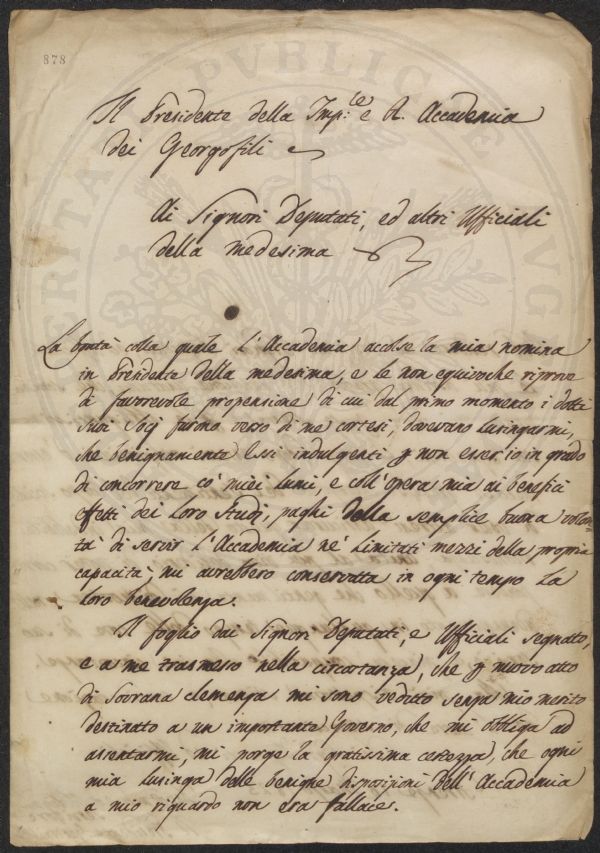 878
Il Presidente della Imp:le e R. Accademia
dei Georgofili
Ai Signori Deputati, ed altri Ufficiali
della medesima
La bontà colla quale l'Accademia accolse la mia nomina
in Presidente della medesima, e le non equivoche riprove
di favorevole propensione di cui dal primo momento i dotti
suoi Socj furono verso di me cortesi, dovevano lusingarmi,
che benignamente Essi indulgenti p non esser io in grado
di concorrere co' miei lumi, e coll'opera mia ai benefici
effetti dei loro Studj, paghi della semplice buona volon=
tà di servir l'Accademia ne' limitati mezzi della propria
capacità, mi avrebbero conservata in ogni tempo la
loro benevolenza.
Il foglio dai Signori Deputati, e Ufficiali segnato,
e a me trasmesso nella circostanza, che p nuovo atto
di Sovrana clemenza mi sono veduto senza mio merito
destinato a un importante Governo, che mi obbliga ad
assentarmi, mi porge la gratissima certezza, che ogni
mia lusinga delle benigne disposizioni dell'Accademia
a mio riguardo non era fallace.
PVBLICAE